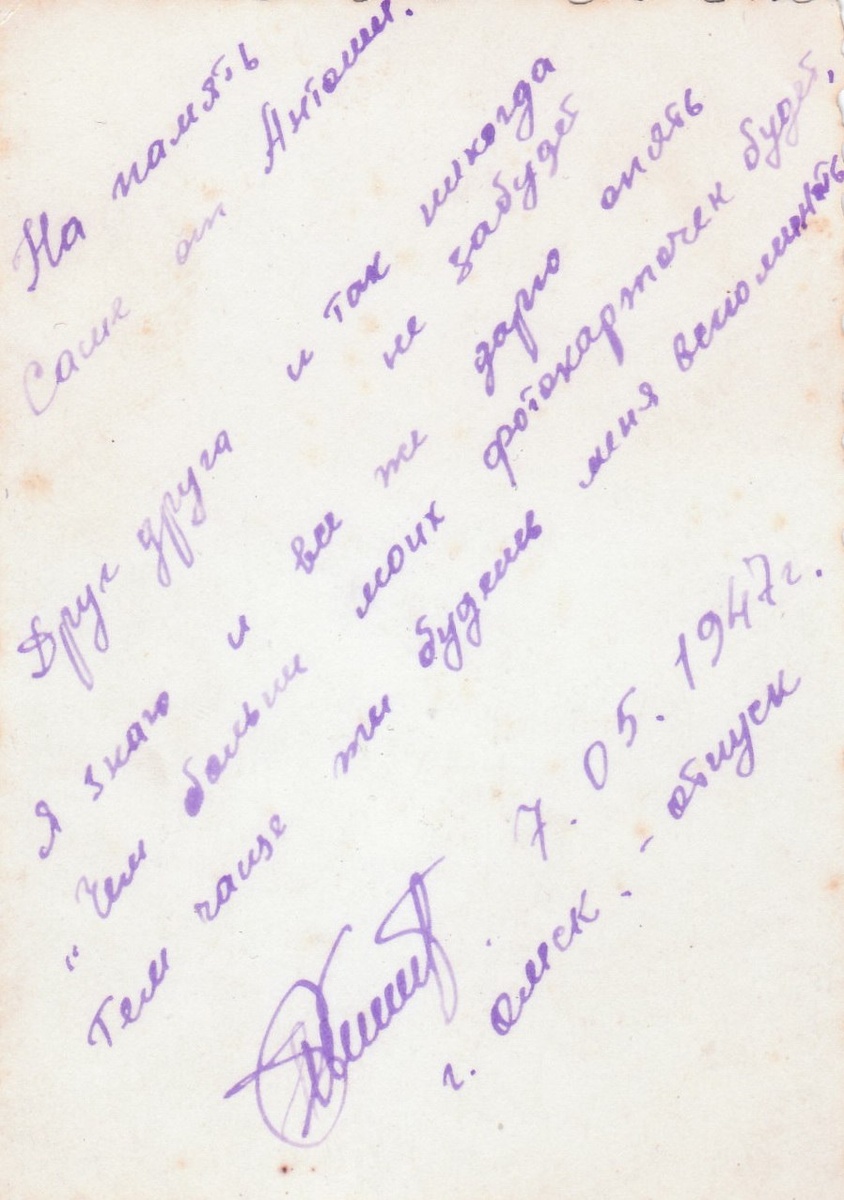 На память
Саше от Антоши.
Друг друга и так никогда
не забудет
Я знаю и все же дарю опять
"Чем больши моих фотокарточек будет,
Тем чаще ты будешь меня вспоминать
7.05.1947г.
г. Омск. - отпуск